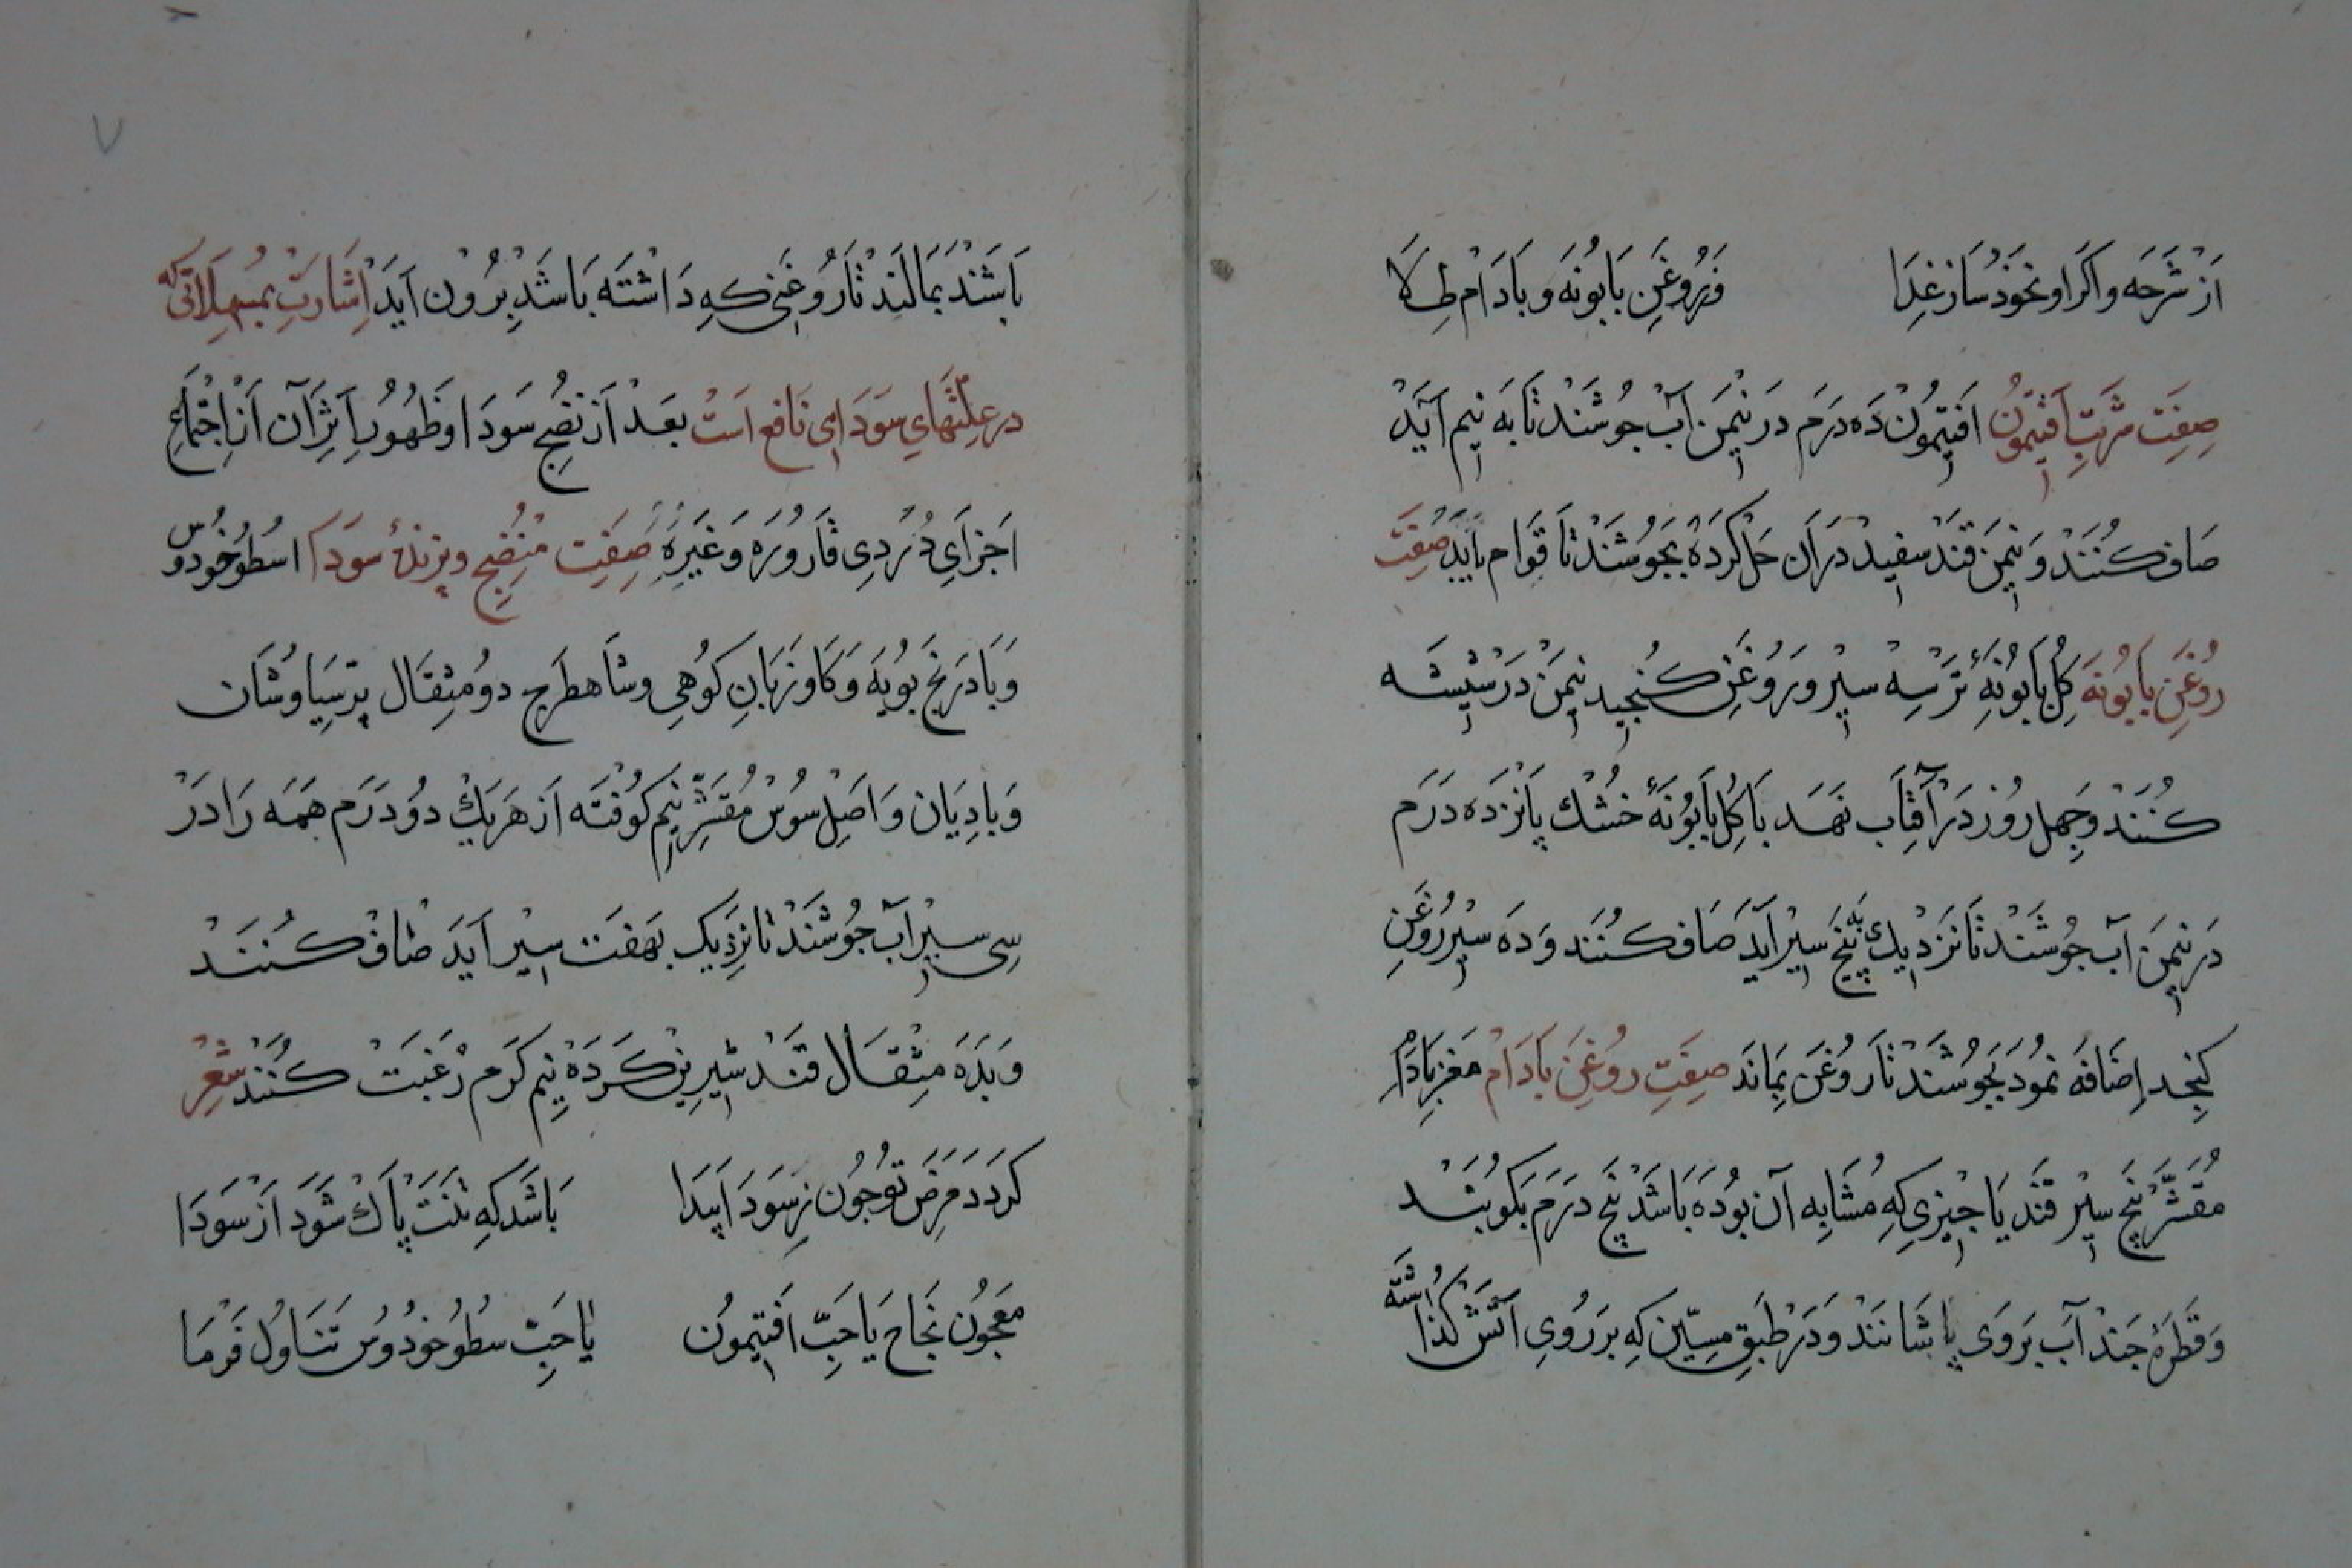 اَزْ شَرحَه واكَرا و نخوَدْ سَازْ غِدَا وَرُوغَنِ بَابُونَه و بادَامْ طِلا
صِفَتِ شَربَتِ اَفتِيمُون اَفتِيمُونْ دَه دَرَم دَر نِيمَن آبْ جُوشَنَدْ تَا بَه نِيم آيَدْ
صَاف كُنَنَدْ وَ نِيمَن قَنَد سفِيد دَرآن حَل كَردَهْ بجُوشَنَدْ تَا قَوَام يَابَدْ صِفَتِ
رُوغَنِ بَابُونَه كُل بَابُونَهِٔ تَر سِه سِيْر و رَوُغَنِ كُنجِيد نِيمَنْ دَر شِيشَه
كُنَنَدْ وجِهِل رُوز دَر آفتَاب نهَند بَا كُل بَابُونَهٔ خُشْك پَانزدَه دَرَم
دَر نِيمَن آب جُوشَنَدْ تَا نَزدِيك بَه پنج سِيْر آيَد صَاف كُنَنَد وَدَه سِيْر رُوغَنِ
كنجِد اِضَافَه نمُودَه بجُوشَنَدْ تا رُوغَن بِمَانَد صِفَتِ رُوغَنِ بَادَامْ مَغزِ بَادَامْ
مُقَشَّرْ پَنج سِيْر قَنَد يَا جِيزِي كِه مُشَابِه آن بُودَه بَاشَدْ پَنج دَرَم بَكُوبَنْد
وَقَطرَهٔ جَندْ آب بَر وَي پاشَانَنَدْ وَدَر طَبَقِ مِسِّين كِه بَر رُويِ آتَشْ كُذَاشْتَه
بَاشَنَدْ بمَالَند تَا رُوغَني كِه دَاشتَه بَاشَدْ بِرُون آيَدْ اِشَارَتْ بمُسهِلَاتي كه
در عِلّتهَايِ سَودَاي نَافع اَستْ بَعَدْ اَز نُضْج سَودَا و ظُهُورِ اَثَرِ آن اَز اِجْتِمَاعِ
اَجزَايِ دُردِي قَارُورَه وَغَيرِه صِفَتِ مُنضِج وپزندهٔ سَودَا اسطُوخُودُوس
وَبَادَرَنج بُويَه وَكَاوزَبَانِ كوُهِي و شَاهطَرج دوُ مِثقَال پَرسِيَاوشَان
وَبادِيَان وَاَصِل سُوسْ مُقَشَّر نِيم كُوفتَه اَز هَر يَكْ دوُ دَرَم هَمَه رَا دَرْ
سِي سِيْر آب جُوشَنَدْ تا نَزدِيك بهَفت سِيْر آيَدَ صَافْ كُنَنَدْ
وَبَدَه مِثقَال قَنَد شِيرِينْ كَردَهْ نِيم كَرم رَغبَتْ كُنَنَدْ شِعْر
كردَد مَرَض تو جُون زِسَودَا پَيدَا بَاشَد كِه تنَتْ پَاكْ شَوَد اَزْ سَودَا
مَعجُون نجَاح يَا حَبِّ اَفتِيمُون يَا حَبِّ سطُوخودُوس تَنَاوُل فَرمَا